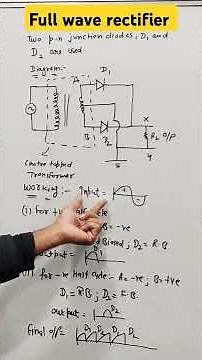 Full wave rectifier
Two p-n junction diodes, D1 and
D2 are used.
Diagram:-
A
D1
X
B
D2
RL O/P
Y
Centre tapped
Transformer
Working :- Input =
(i) For +ve
B = -ve
Biased; D2 = R.B
output = D1
(ii) For -ve half cycle :- A = -ve, B = +ve
D1 = R.B ; D2 = F.B.
output = D2
final o/p = D1 D2 D1 D2